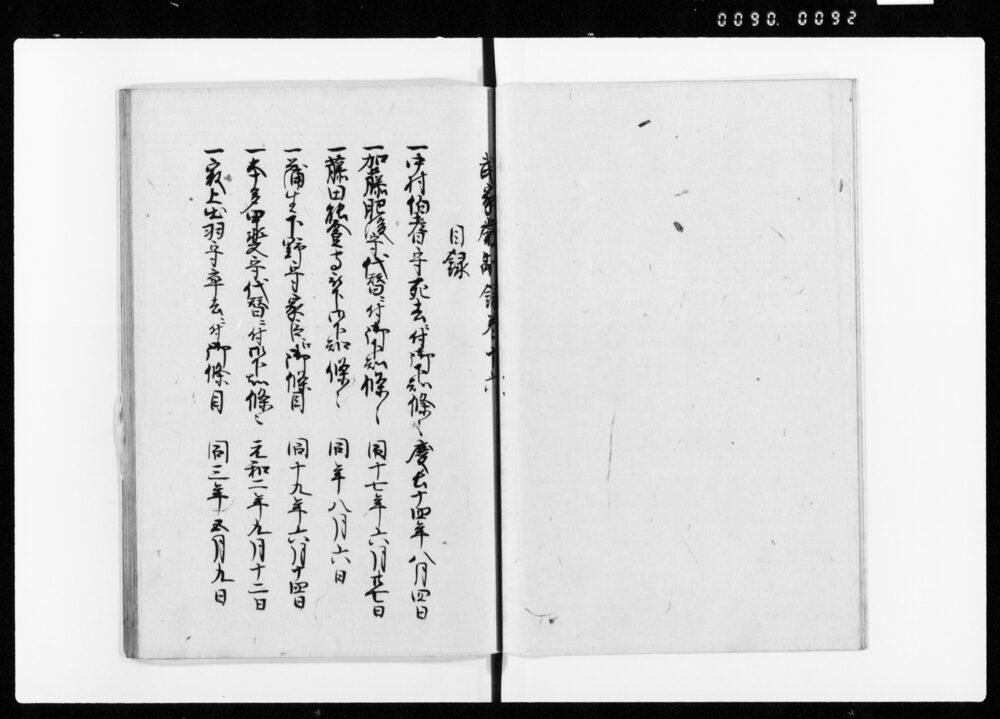 0090. 0092
武家嚴制録卷十六
目録
一中村伯耆守死去ニ付御下知條々 慶長十四年八月四日
一加藤肥後守代替ニ付御下知條々 同十七年六月廿七日
一藤田能登守 御下知條々 同年八月六日
一蒲生下野守家臣江御條目 同十九年六月十四日
一本多甲斐守代替ニ付御下知條々 元和二年九月十二日
一最上出羽守卒去ニ付御條目 同三年五月九日